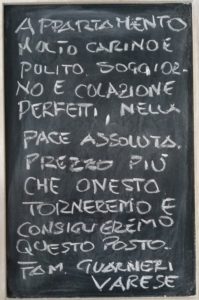 APPARTAMENTO
MOLTO CARINO E
PULITO. SOGGIOR-
NO E COLAZIONE
PERFETTI, NELLA
PACE ASSOLUTA.
PREZZO PIÙ
CHE ONESTO
TORNEREMO E
CONSIGLIEREMO
QUESTO POSTO.
FAM. GUARNERI
VARESE